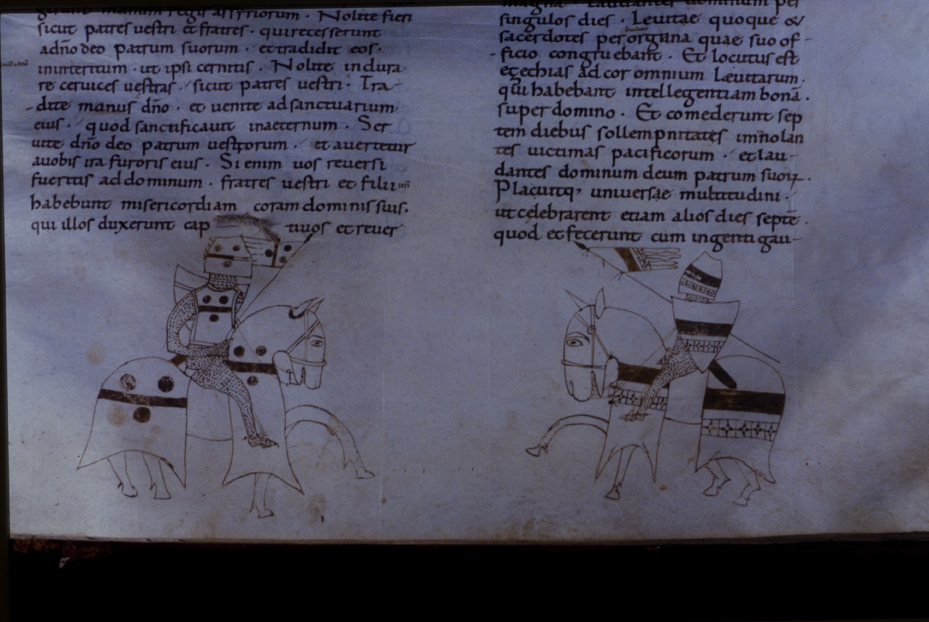 gerunt manum regis assyriorum · Nolite fieri
sicut patres uestri et fratres · qui recesserunt
ad dño deo patrum suorum · et tradidit eos ·
in interitum · ut ipsi cernitis · Nolite indura
re ceruices uestras · sicut patres uestri · Tra-
dite manus dño · et uenite ad sanctuarium
eius · quod sanctificauit in aeternum · Ser
uite dño deo patrum uestrorum · et auertetur
a uobis ira furoris eius · Si enim uos reuersi
fueritis ad dominum · fratres uestri et filii
habebunt misericordiam coram dominis suis ·
qui illos duxerunt cap tiuos et reuer
magna · Laudantes dominum per
singulos dies · Leuitae quoque &
sacerdotes per organa quae suo of-
ficio congruebant · Et locutus est
ezechias ad cor omnium Leuitarum ·
qui habebant intellegentiam bonā ·
super domino · Et comederunt sep
tem diebus sollempnitatis immolan
tes uictimas pacificorum · et lau-
dantes dominum deum patrum suoꝝ ·
Placuitq; uniuersae multitudini ·
ut celebrarent etiam alios dies septē ·
quod et fecerunt cum ingenti gau-